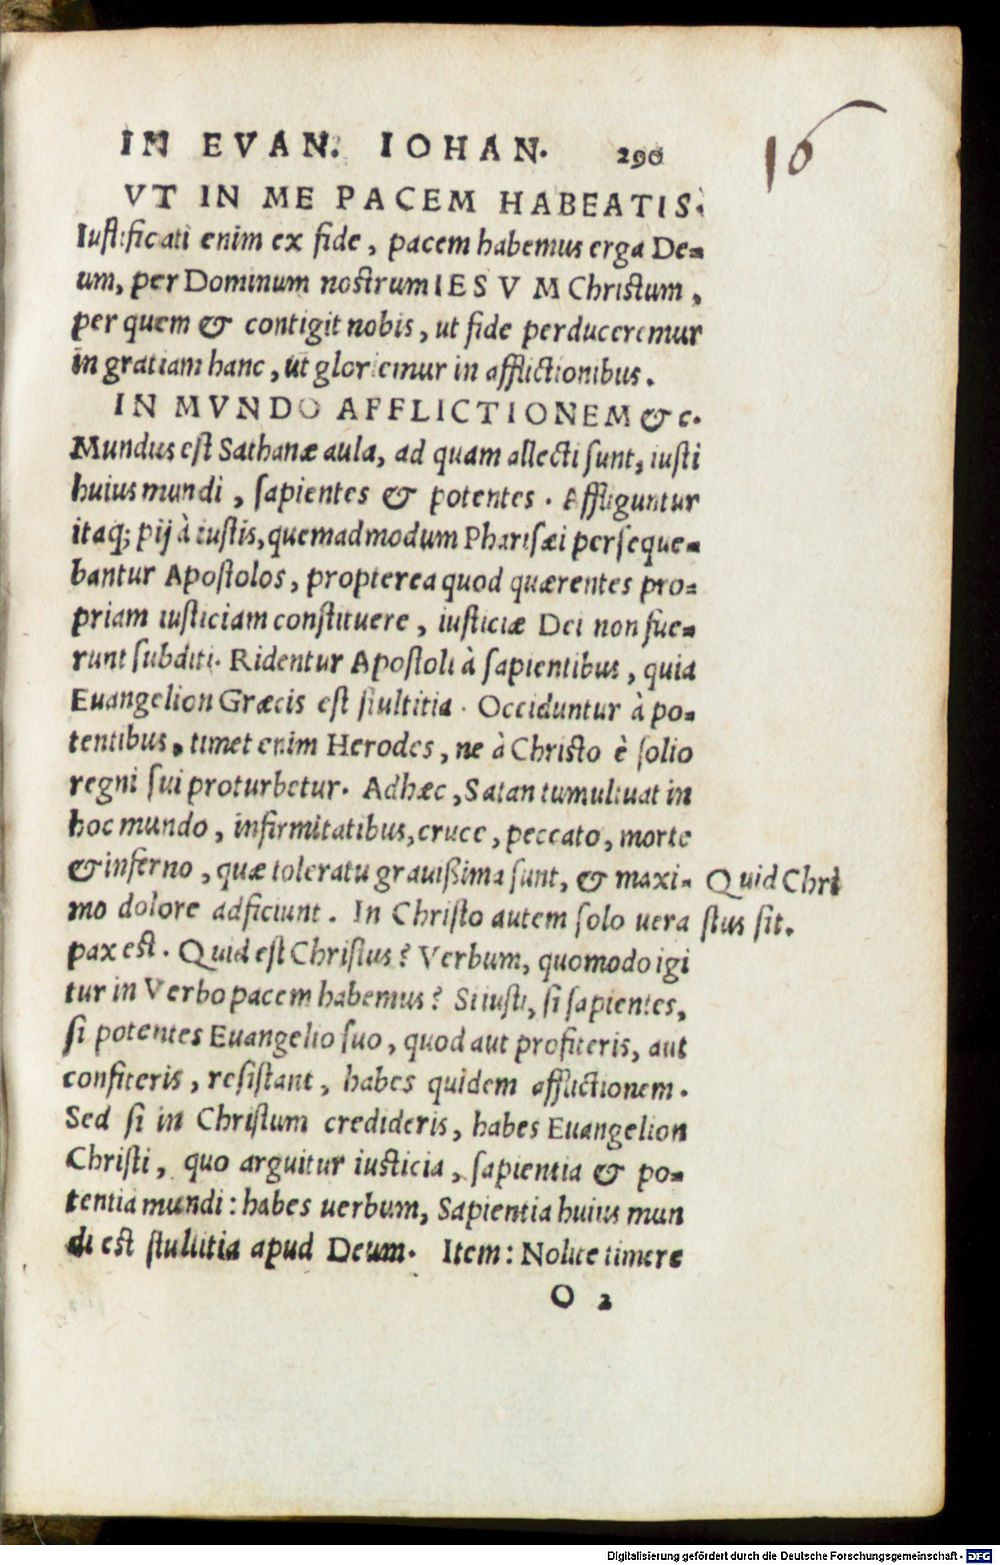 IN EVAN. IOHAN. 290
16
VT IN ME PACEM HABEATIS.
Iustificati enim ex fide, pacem habemus erga De-
um, per Dominum nostrum IESVM Christum,
per quem & contigit nobis, ut fide perduceremur
in gratiam hanc, ut gloriemur in afflictionibus.
IN MVNDO AFFLICTIONEM &c.
Mundus est Sathanæ aula, ad quam allecti sunt, iusti
huius mundi, sapientes & potentes. Affliguntur
itaq; pij à iustis, quemadmodum Pharisæi perseque-
bantur Apostolos, propterea quod quærentes pro-
priam iusticiam constituere, iusticiæ Dei non fue-
runt subditi. Ridentur Apostoli à sapientibus, quia
Euangelion Græcis est stultitia. Occiduntur à po-
tentibus, timet enim Herodes, ne à Christo è solio
regni sui proturbetur. Adhæc, Satan tumultuat in
hoc mundo, infirmitatibus, cruce, peccato, morte
& inferno, quæ toleratu grauißima sunt, & maxi-
mo dolore adficiunt. In Christo autem solo uera
pax est. Quid est Christus? Verbum, quomodo igi
tur in Verbo pacem habemus? Si iusti, si sapientes,
si potentes Euangelio suo, quod aut profiteris, aut
confiteris, resistant, habes quidem afflictionem.
Sed si in Christum credideris, habes Euangelion
Christi, quo arguitur iusticia, sapientia & po-
tentia mundi: habes uerbum, Sapientia huius mun
di est stultitia apud Deum. Item: Nolite timere
Quid Chri
stus sit.
O 2
Digitalisierung gefördert durch die Deutsche Forschungsgemeinschaft - DFG